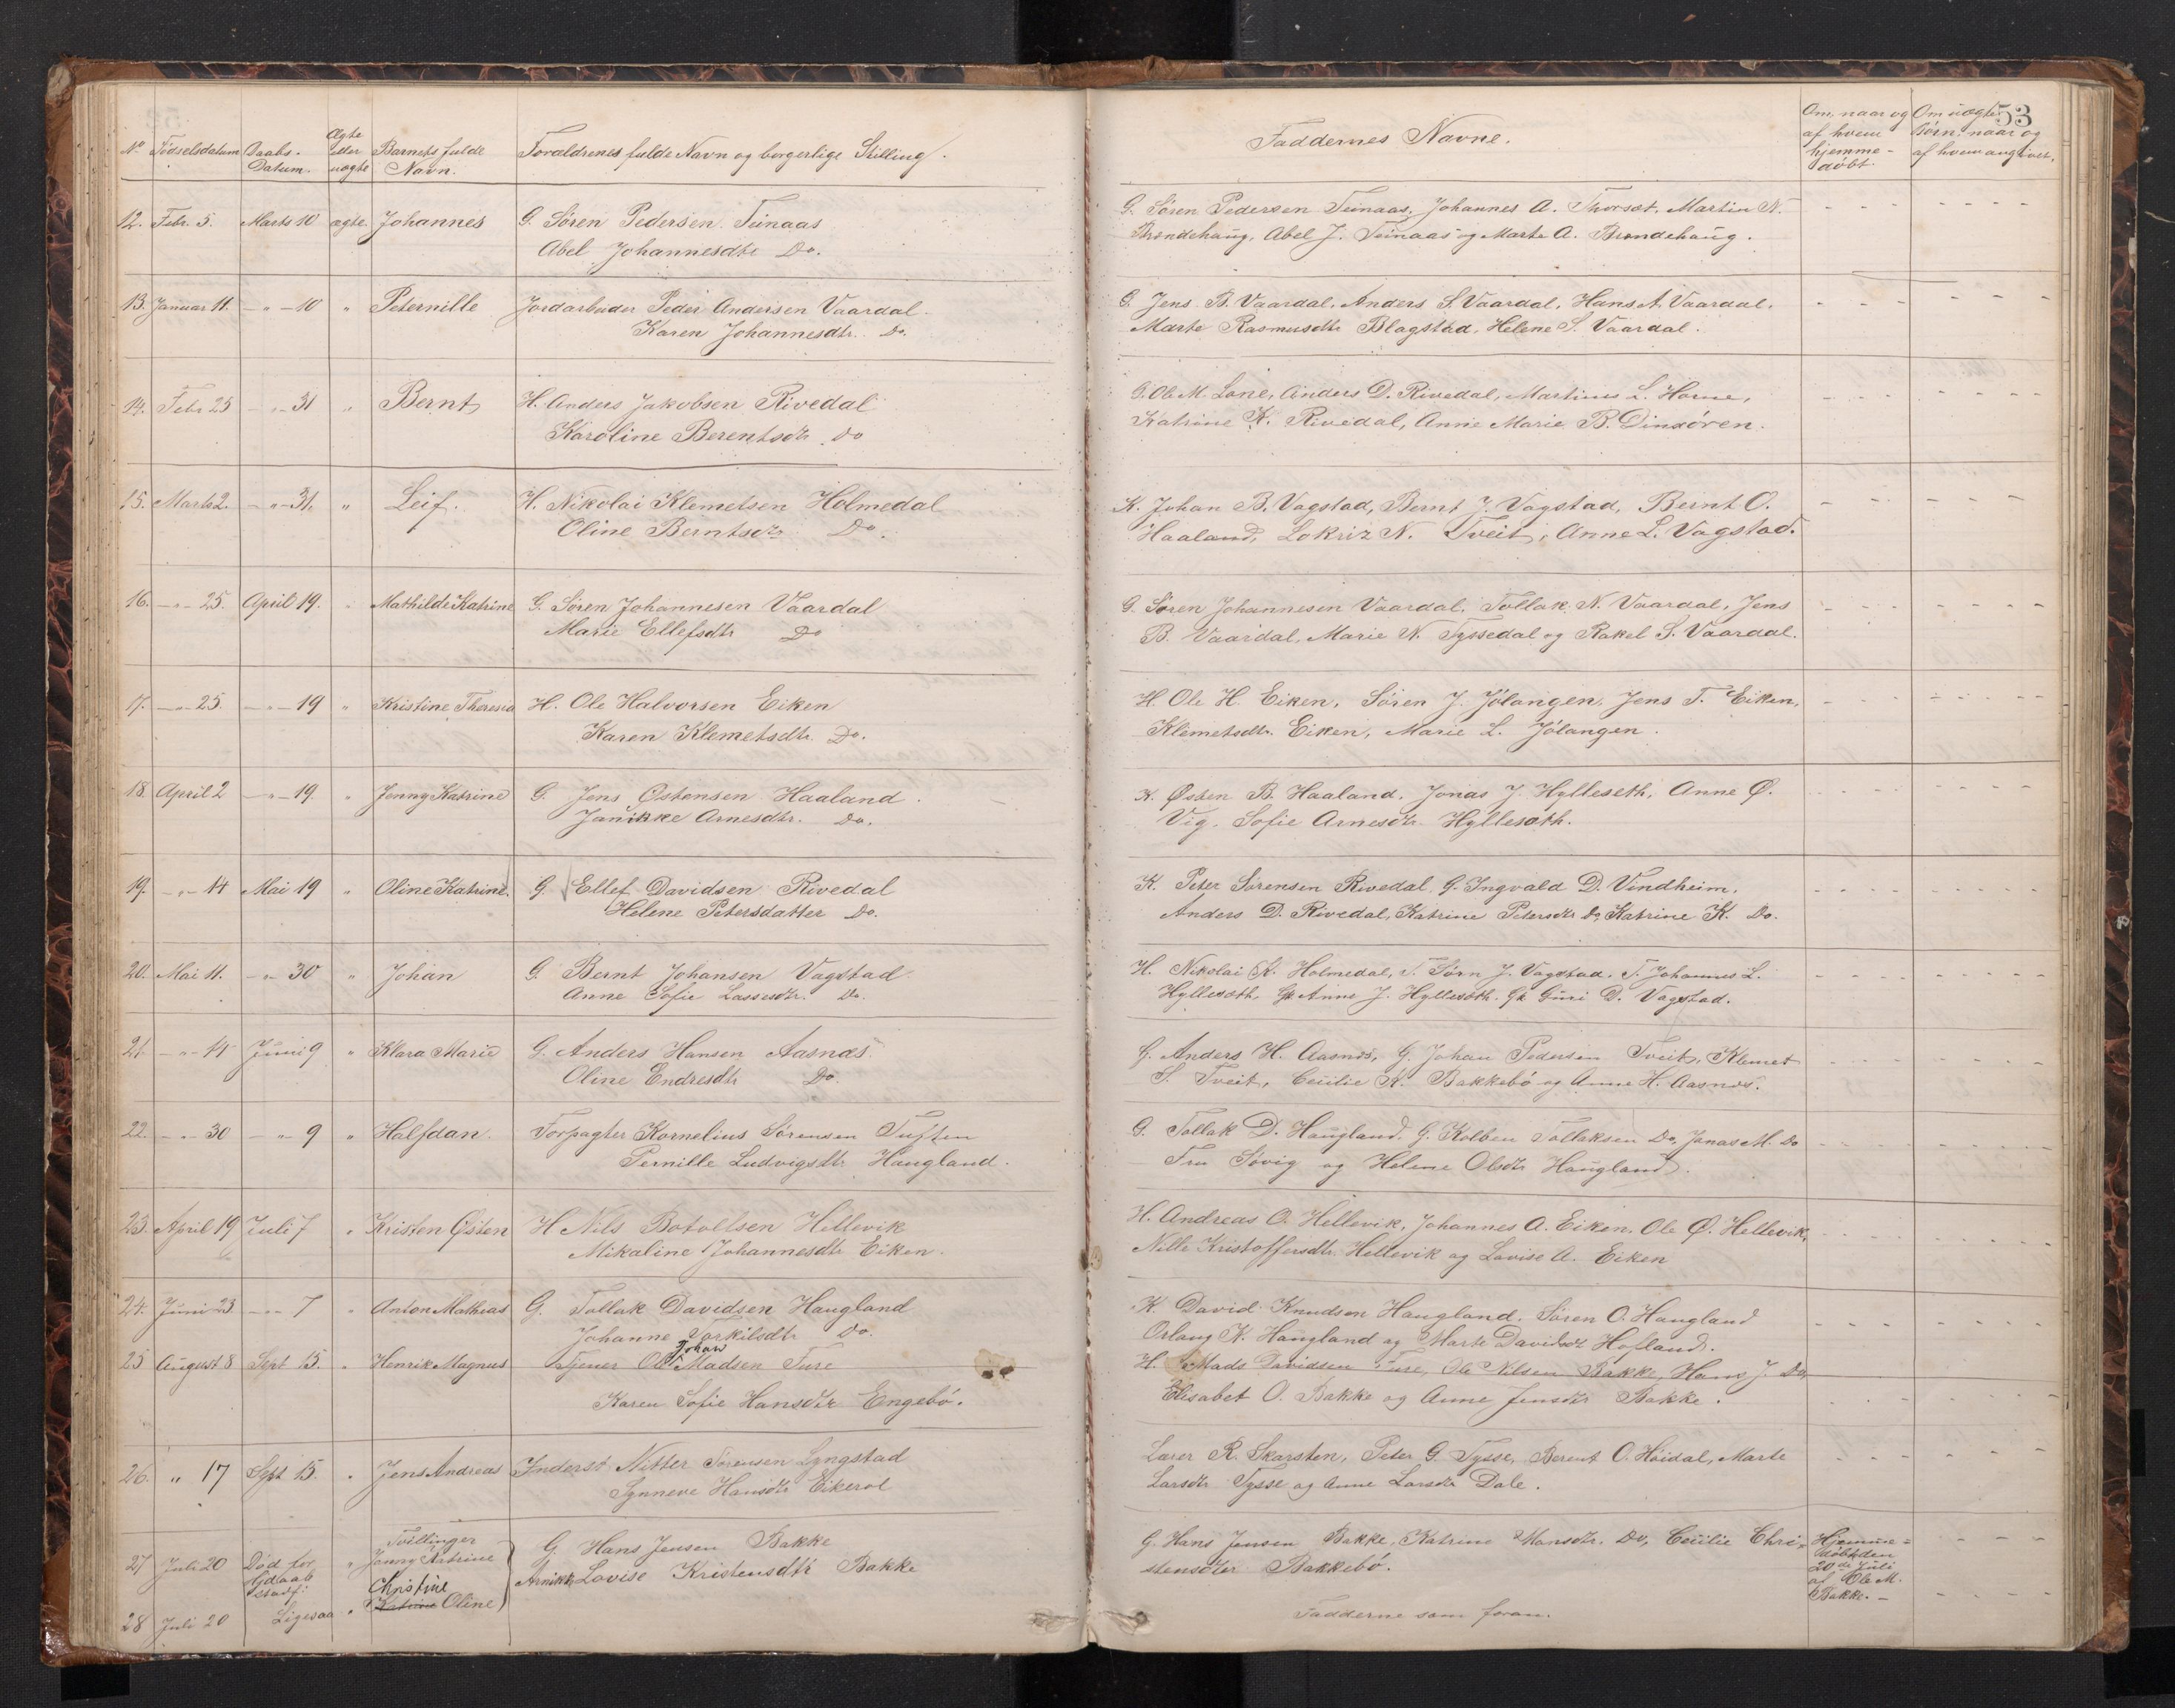 53
No Fødselsdatum Daabs-Datum. Ægte eller uægte Barnets fulde Navn. Forældrenes fulde Navn og borgerlige Stilling.
Faddernes Navne. Om, naar og af hvem hjemme-døbt. Om uægte Børn: naar og af hvem angivet.
12. Febr. 5. Marts 10 ægte. Johannes G. Søren Pedersen Teinaas
Abel Johannesdtr Do.
G. Søren Pedersen Teinaas, Johannes A. Thorsæt, Martin N.
Brændehaug, Abel J. Teinaas og Marte A. Brændehaug.
13. Januar 11. - " - 10 " Peternille Jordarbeider Peder Andersen Vaardal
Karen Johannesdtr. Do.
G. Jens B. Vaardal, Anders S. Vaardal, Hans A. Vaardal,
Marte Rasmusdtr Blagstad, Helene S. Vaardal.
14. Febr 25 - " - 31 " Bernt H. Anders Jakobsen Rivedal
Karoline Berentsdtr Do
G. Ole M. Lone, Anders D. Rivedal, Martinus L. Horne,
Katrine K. Rivedal, Anne Marie B. Dinsøren.
15. Marts 2. - " - 31. " Leif. H. Nikolai Klemetsen Holmedal
Oline Berntsdtr Do.
K. Johan B. Vagstad, Bernt J. Vagstad, Bernt O.
Haaland, Lokriz N. Tveit, Anne L. Vagstad.
16. - " - 25. April 19. " Mathilde Katrine G. Søren Johannesen Vaardal
Marie Ellefsdtr Do
G. Søren Johannesen Vaardal, Tollak N. Vaardal, Jens
B. Vaardal, Marie N. Tyssedal og Rakel S. Vaardal.
17. - " - 25. - " - 19 " Kristine Theresia H. Ole Halvorsen Eiken
Karen Klemetsdtr. Do.
H. Ole H. Eiken, Søren J. Jølangen, Jens T. Eiken,
Klemetsdtr. Eiken, Marie L. Jølangen.
18. April 2 - " - 19. " Jenny Katrine G. Jens Østensen Haaland
Janikke Arnesdtr. Do.
K. Østen B. Haaland, Jonas J. Hylleseth, Anne Ø.
Vig, Sofie Arnesdtr Hyllesæth.
19. - " - 14 Mai 19 " Oline Katrine. G. Ellef Davidsen Rivedal
Helene Petersdatter Do.
K. Peter Sørensen Rivedal, G. Ingvald D. Vindheim,
Anders D. Rivedal, Katrine Petersdtr Do, Katrine K. Do.
20. Mai 11. - " - 30 " Johan G. Bernt Johansen Vagstad
Anne Sofie Lassesdtr. Do.
H. Nikolai K. Holmedal, T. Søren J. Vagstad, T. Johannes L.
Hyllesæth, Gk Anne J. Hyllesæth, Gk Guri D. Vagstad.
21. - " - 14 Juni 9 " Klara Marie G. Anders Hansen Aasnæs
Oline Endresdtr Do.
G. Anders H. Aasnæs, G. Johan Pedersen Tveit, Klemet
S. Tveit, Cecilie K. Bakkebø og Anne H. Aasnæs.
22. - " - 30 - " 9 " Halfdan. Forpagter Kornelius Sørensen Tuften
Pernille Ludvigsdtr Haugland.
G. Tollak D. Haugland, G. Kolben Tollaksen Do, Jonas M. Do
Fru Søvig og Helene Olsdtr Haugland.
23. April 19 Juli 7 " Kristen Østen H Nils Botoltsen Hellevik
Mikaline Johannesdtr Eiken.
H. Andreas O. Hellevik, Johannes A. Eiken, Ole Ø. Hellevik,
Nille Kristoffersdtr. Hellevik og Lovise A. Eiken
24. Juni 23 - " - 7 " Anton Mathias G. Tollak Davidsen Haugland
Johanne Torkilsdtr Do.
K. David Knudsen Haugland, Søren O. Haugland
Orlaug K. Haugland og Marte Davidsdtr Hofland.
25 August 8 Sept 15. " Henrik Magnus Tjener Ole Johan Madsen Fure
Karen Sofie Hansdtr Engebø.
H. Mads Davidsen Fure, Ole Nilsen Bakke, Hans J. Do,
Elisabet O. Bakke og Anne Jensdtr Bakke.
26. " 17 Sept 15. " Jens Andreas Inderst Nitter Sørensen Lyngstad
Synneve Hansdtr Eikerol
Lærer R. Skarsten, Peter G. Tysse, Berent O. Høidal, Marte
Larsdtr Tysse og Anne Larsdtr Dale.
Tvillinger
27 Juli 20 Død før Hjdaab stadf: " Jenny Katrine G. Hans Jensen Bakke
Christine Lovise Kristensdtr Bakke
28 Juli 20 Ligesaa " Katrine Oline
G. Hans Jensen Bakke, Katrine Hansdtr. Do, Cecilie Chri-
stensdtr Bakkebø.
Hjemme-døbt den 20de Juli af Ole M. Bakke.
Fadderne som foran.